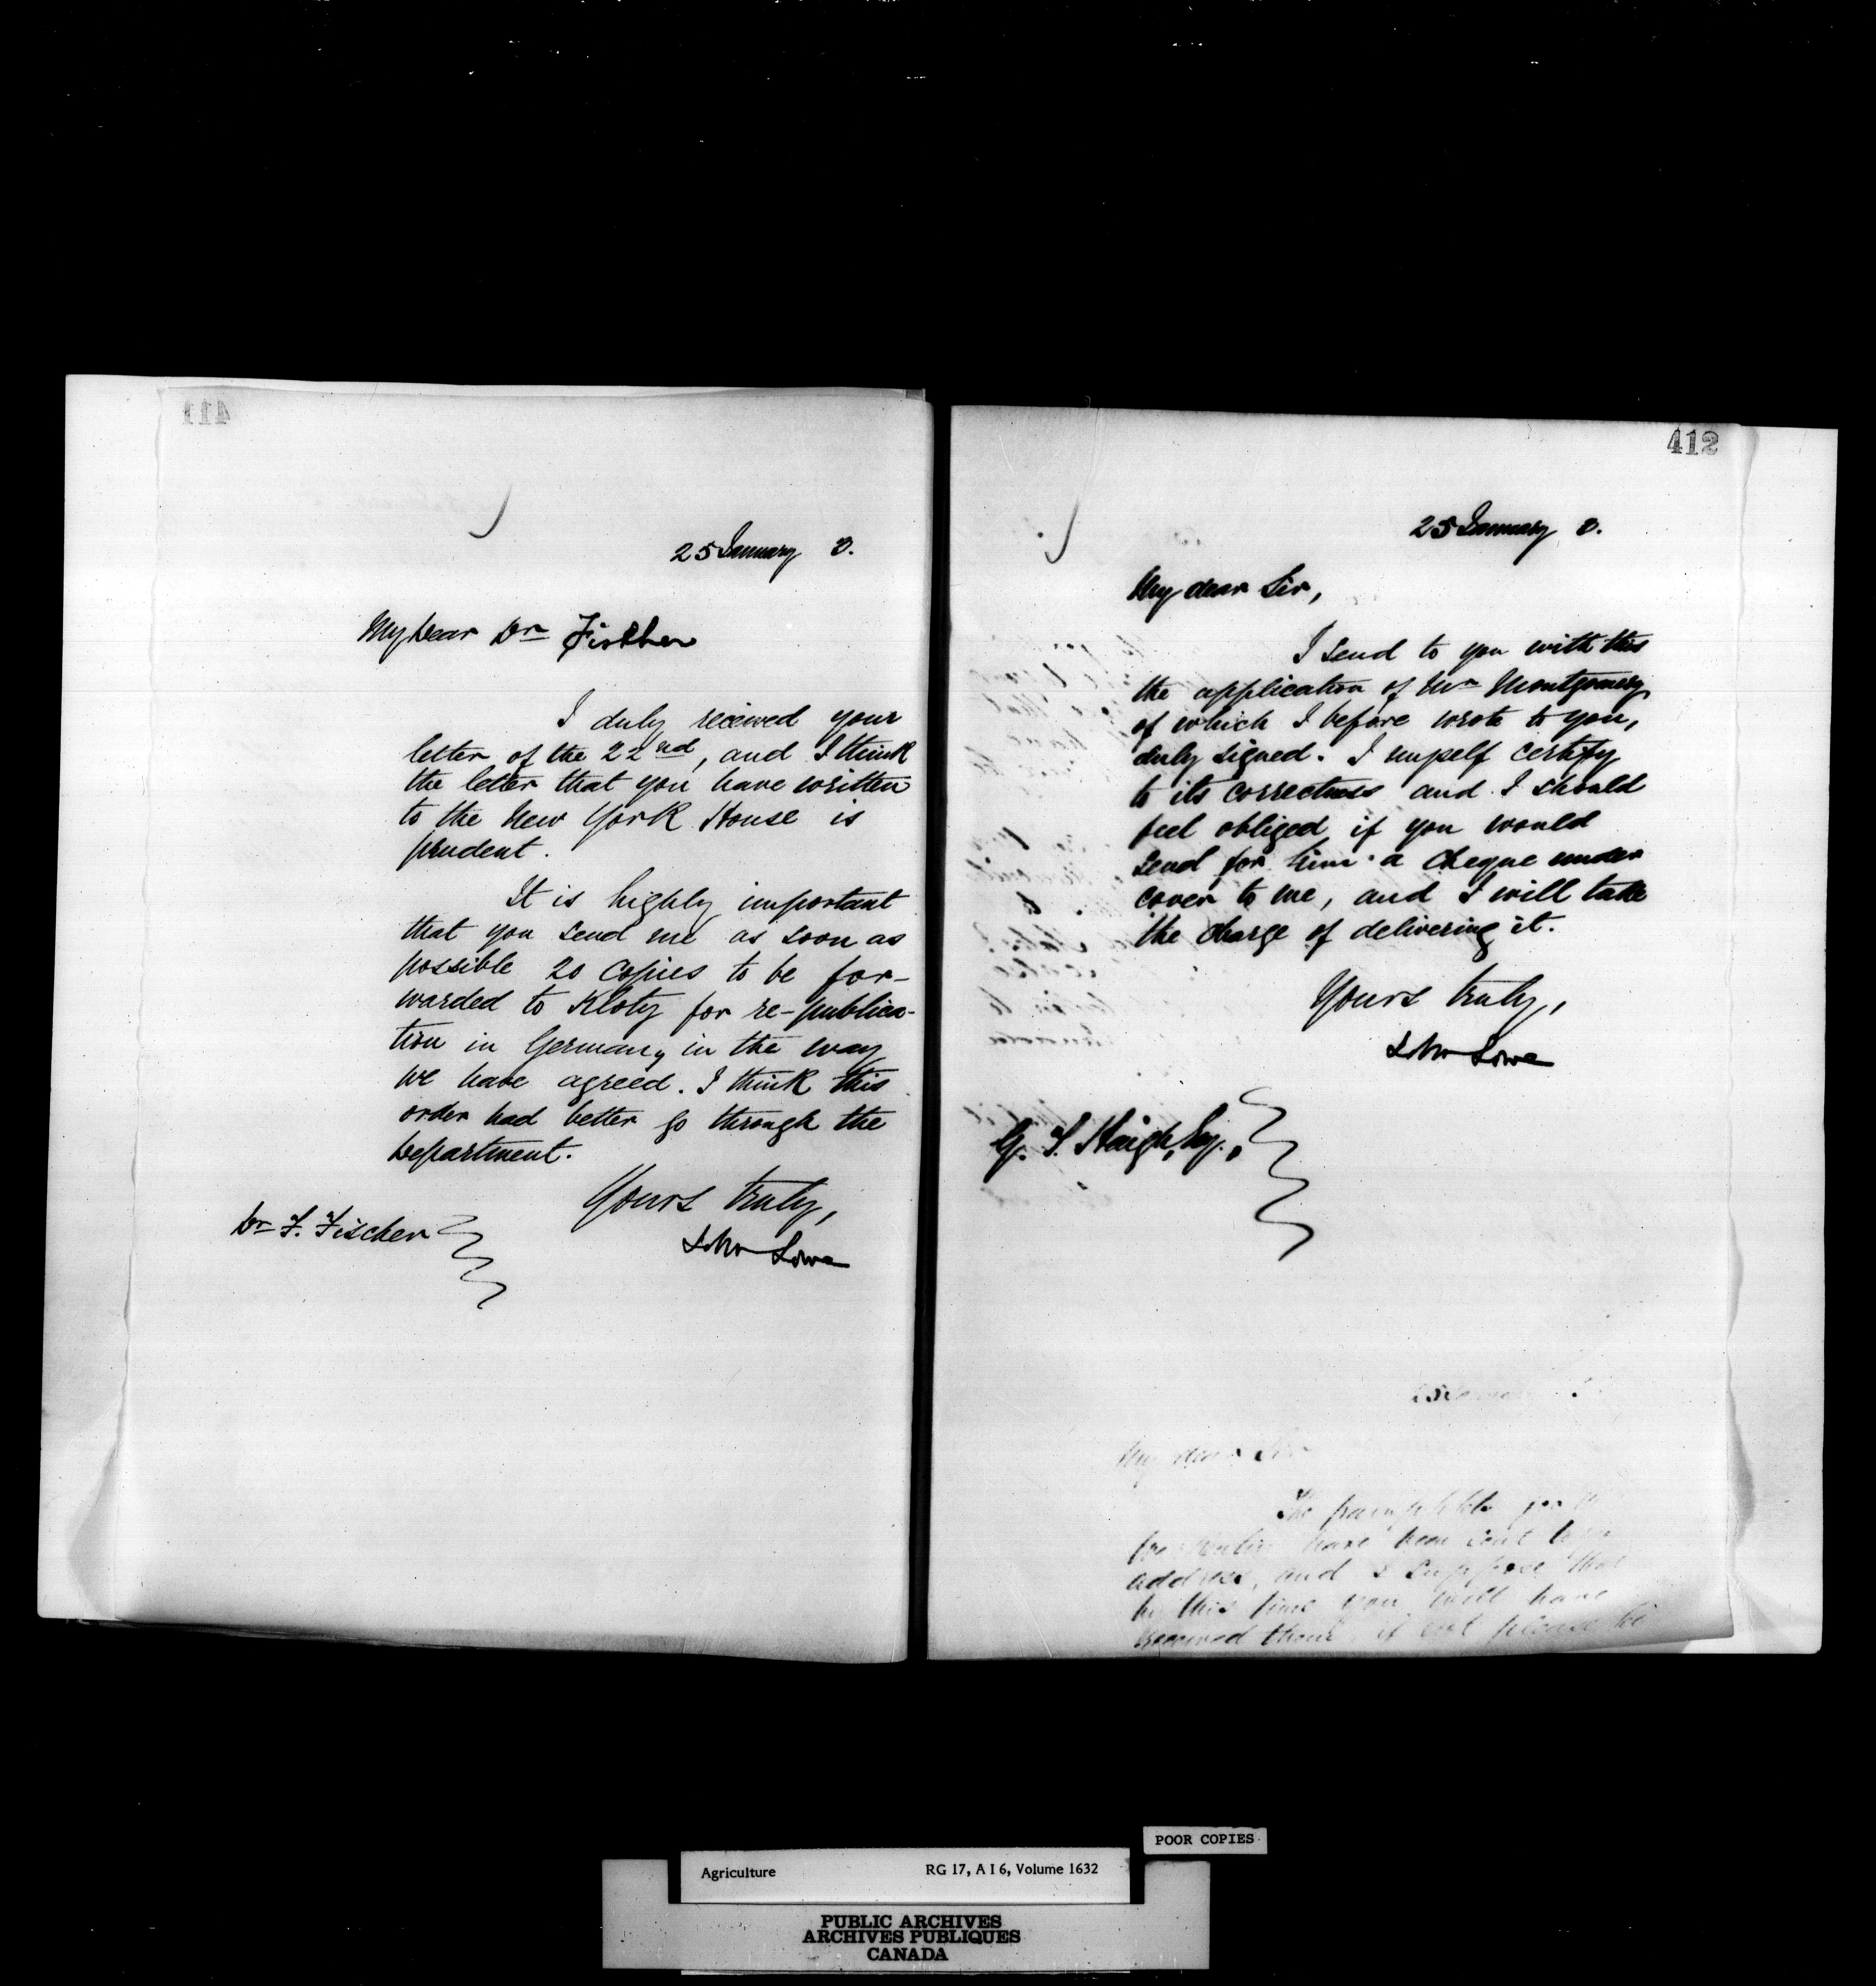 411
25 January 3.
My Dear Dr Fischer
I duly received your
letter of the 22nd, and I think
the letter that you have written
to the New York House is
prudent.
It is highly important
that you send me as soon as
possible 20 copies to be for-
warded to Klotz for re-publica-
tion in Germany in the way
we have agreed. I think this
order had better go through the
Department.
Yours truly,
John Lowe
Dr F. Fischer
412
25 January 3.
My dear Sir,
I send to you with this
the application of Mr Montgomery
of which I before wrote to you,
duly signed. I myself certify
to its correctness and I should
feel obliged if you would
send for him a cheque under
cover to me, and I will take
the charge of delivering it.
Yours truly,
John Lowe
G. T. Haigh, Esq.,
My dear Sir
The pamphlets
have been sent
address, and I suppose that
by this time you will have
received them if not please
POOR COPIES
Agriculture RG 17, A I 6, Volume 1632
PUBLIC ARCHIVES
ARCHIVES PUBLIQUES
CANADA